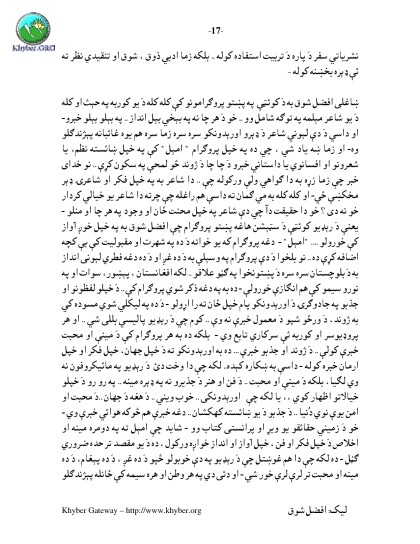 -17-
Khyber.ORG
نشرياتي سفر دَ پاره دَ تربيت استفاده کوله .. بلکه زما ادبي ذوق ، شوق او تنقيدي نظر ته
ئې ډېره بخښنه کوله -
ښاغلی افضل شوق به دَ کوئټې په پښتو پروګرامونو کې کله کله دَ يو کوربه په حيث او کله
دَ يو شاعر مېلمه په توګه شامل وو .. خو دَ هر چا نه په بېخي بېل انداز .. په بېلو بېلو خبرو-
او داسې دَ دې لېونې شاعر دَ ډېرو اورېدونکو سره سره زما سره هم يوه غائبانه پېژندګلو
وه- او زما ښه ياد شي ، چې ده په خپل پروګرام " امېل" کې په خپل ښائسته نظم، يا
شعرونو او افسانوي يا داستاني خبرو دَ چا چا دَ ژوند څو لمحې په سکون کړې .. نو خدای
خبر چې زما زړه به دا ګواهي ولې ورکوله چې .. دا شاعر به په خپل فکر او شاعرۍ ډېر
مخکښې ځي- او کله کله به مې ګمان ته داسې هم راغله چې چرته دا شاعر يو خيالي کردار
خو نه دی ؟ خو دا حقيقت دأ چې دې شاعر په خپل محنت ځان او وجود په هر چا او منلو -
يعنې دَ رېډيو کوئټې دَ سټېشن هاغه پښتو پروګرام چې افضل شوق به په خپل خوږ آواز
کې خورولو .... "امېل" - دغه پروګرام که يو خوا نه دَ ده په شهرت او مقبوليت کې يې کچه
اضافه کړې ده .. نو بلخوا دَ دې پروګرام په وسيلې به دَ ده غږ او دَ ده دغه فطري لېونی انداز
به دَ بلوچستان سره سره دَ پښتونخوا په ګڼو علاقو .. لکه افغانستان ، پېښور، سوات او په
نورو سيمو کې هم انګازې خورولې- ده به په دغه ذکر شوي پروګرام کې .. دَ خپلو لفظونو او
جذبو په جادوګرۍ دَ اورېدونکو پام خپل ځان ته را اړولو - دَ ده په ليکلي شوي مسوده کې
به ژوند ، دَ ورځو شپو دَ معمول خبرې نه وې .. کوم چې دَ رېډيو پاليسي بللی شي .. او هر
پروډيوسر او کوربه ئې سرکاري تابع وي - بلکه ده به هر پروګرام کې دَ مينې او محبت
خبرې کولې .. دَ ژوند او جذبو خبرې ... ده به اورېدونکو ته دَ خپل جهان، خپل فکر او خپل
ارمان خبره کوله - داسې به ښکاره کېده. لکه چې دا وخت دئ دَ رېډيو په مائيکروفون نه
وي لګيا ، بلکه دَ مينې او محبت .. دَ فن او هنر دَ جذبو نه په ډېره مينه .. په رو رو دَ خپلو
خيالاتو اظهار کوي ،،، يا لکه چې اورېدونکی .. خوب ويني .. دَ هغه دَ جهان ..دَ محبت او
امن يوې نوي دُنيا .. دَ جذبو دَ يو ښائسته کهکشان.. دغه خبرې هم څوکه هوائي خبرې وي-
خو دَ زمينې حقائقو يو وېړ او پرانستی کتاب وو - شايد چې امېل ته په دومره مينه او
اخلاص دَ خپل فکر او فن ، خپل آواز او انداز خواږه ورکول ، ده دَ يو مقصد تر حده ضروري
ګڼل - ده لکه چې دا هم غوښتل چې دَ رېډيو په دې خوبولو څپو دَ ده غږ ، دَ ده پېغام، دَ ده
مينه او محبت تر لرې لرې خور شي - او دئ دې په هر وطن او هره سيمه کې ځانله پېژندګلو
Khyber Gateway – http://www.khyber.org
ليک: افضل شوق